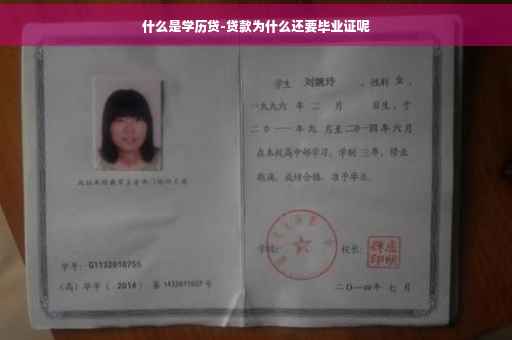 什么是学历贷-贷款为什么还要毕业证呢
学生 刘婉玲 ，性别 女 ，
一九九六 年 二 月 日生，于
二〇一一 年 九 月至 二〇一四 年 六 月
在本校高中部学习，学制 三年，修业
期满，成绩合格，准予毕业。
学校：
校长：
学号： G1132010755
（高）毕字（ 2014 ）第 1432011027 号
二〇一四年 七 月